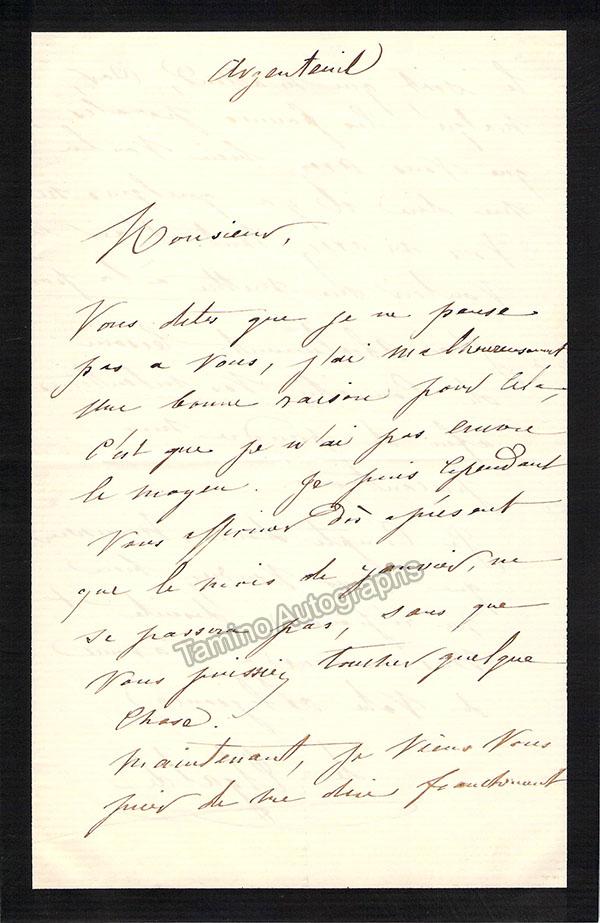 Argenteuil
Monsieur,
Vous dites que je ne pense
pas a Vous, j'ai malheureusement
une bonne raison pour cela,
c'est que je n'ai pas encore
le moyen. Je puis cependant
Vous affirmer dès aprésent
que le mois de janvier, ne
se passera pas, sans que
Vous puissiez toucher quelque
Chose.
Maintenant, je Viens Vous
prier de me dire franchement
Tamino Autographs